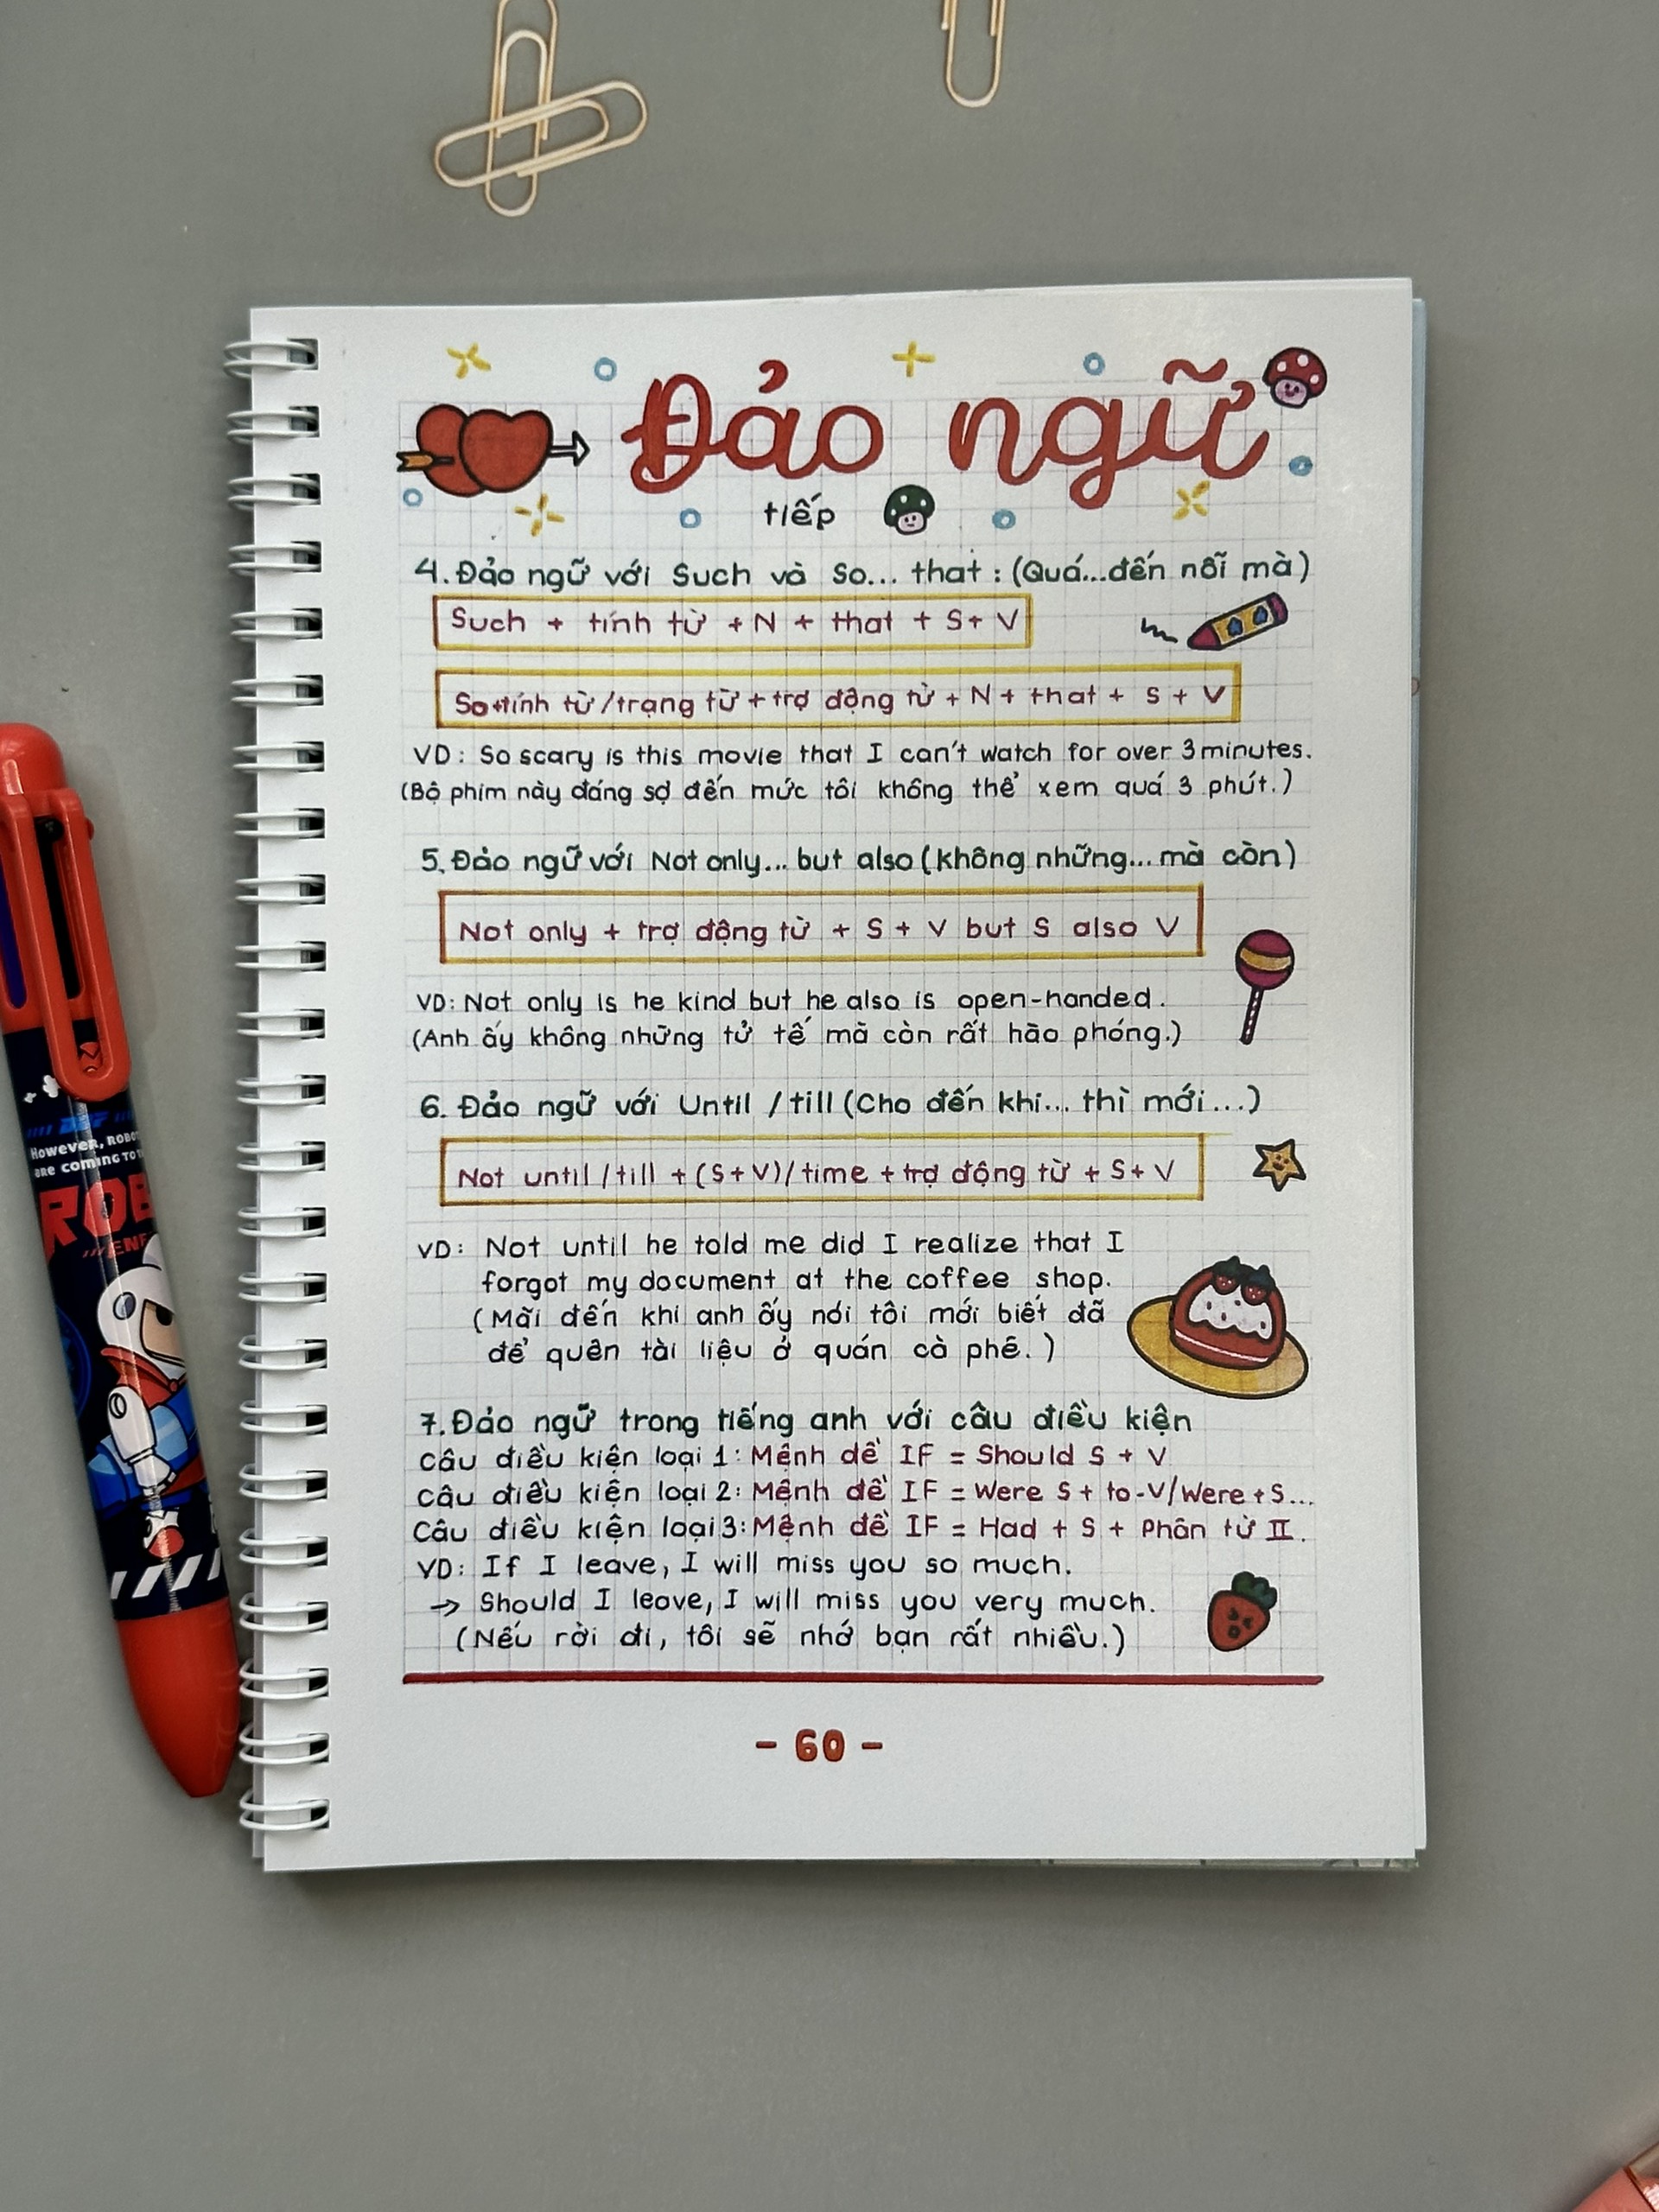 Đảo ngữ
tiếp
4. Đảo ngữ với Such và So... that : (Quá...đến nỗi mà)
Such + tính từ + N + that + S + V
So + tính từ / trạng từ + trợ động từ + N + that + S + V
VD : So scary is this movie that I can't watch for over 3 minutes.
(Bộ phim này đáng sợ đến mức tôi không thể xem quá 3 phút.)
5. Đảo ngữ với Not only... but also (không những... mà còn)
Not only + trợ động từ + S + V but S also V
VD: Not only is he kind but he also is open-handed.
(Anh ấy không những tử tế mà còn rất hào phóng.)
6. Đảo ngữ với Until / till (Cho đến khi... thì mới...)
Not until / till + (S + V) / time + trợ động từ + S + V
VD: Not until he told me did I realize that I
forgot my document at the coffee shop.
(Mãi đến khi anh ấy nói tôi mới biết đã
để quên tài liệu ở quán cà phê.)
7. Đảo ngữ trong tiếng anh với câu điều kiện
Câu điều kiện loại 1: Mệnh đề IF = Should S + V
Câu điều kiện loại 2: Mệnh đề IF = Were S + to-V/Were + S...
Câu điều kiện loại 3: Mệnh đề IF = Had + S + Phân từ II.
VD: If I leave, I will miss you so much.
→ Should I leave, I will miss you very much.
(Nếu rời đi, tôi sẽ nhớ bạn rất nhiều.)
- 60 -
However, ROBO
are coming TO
ROB